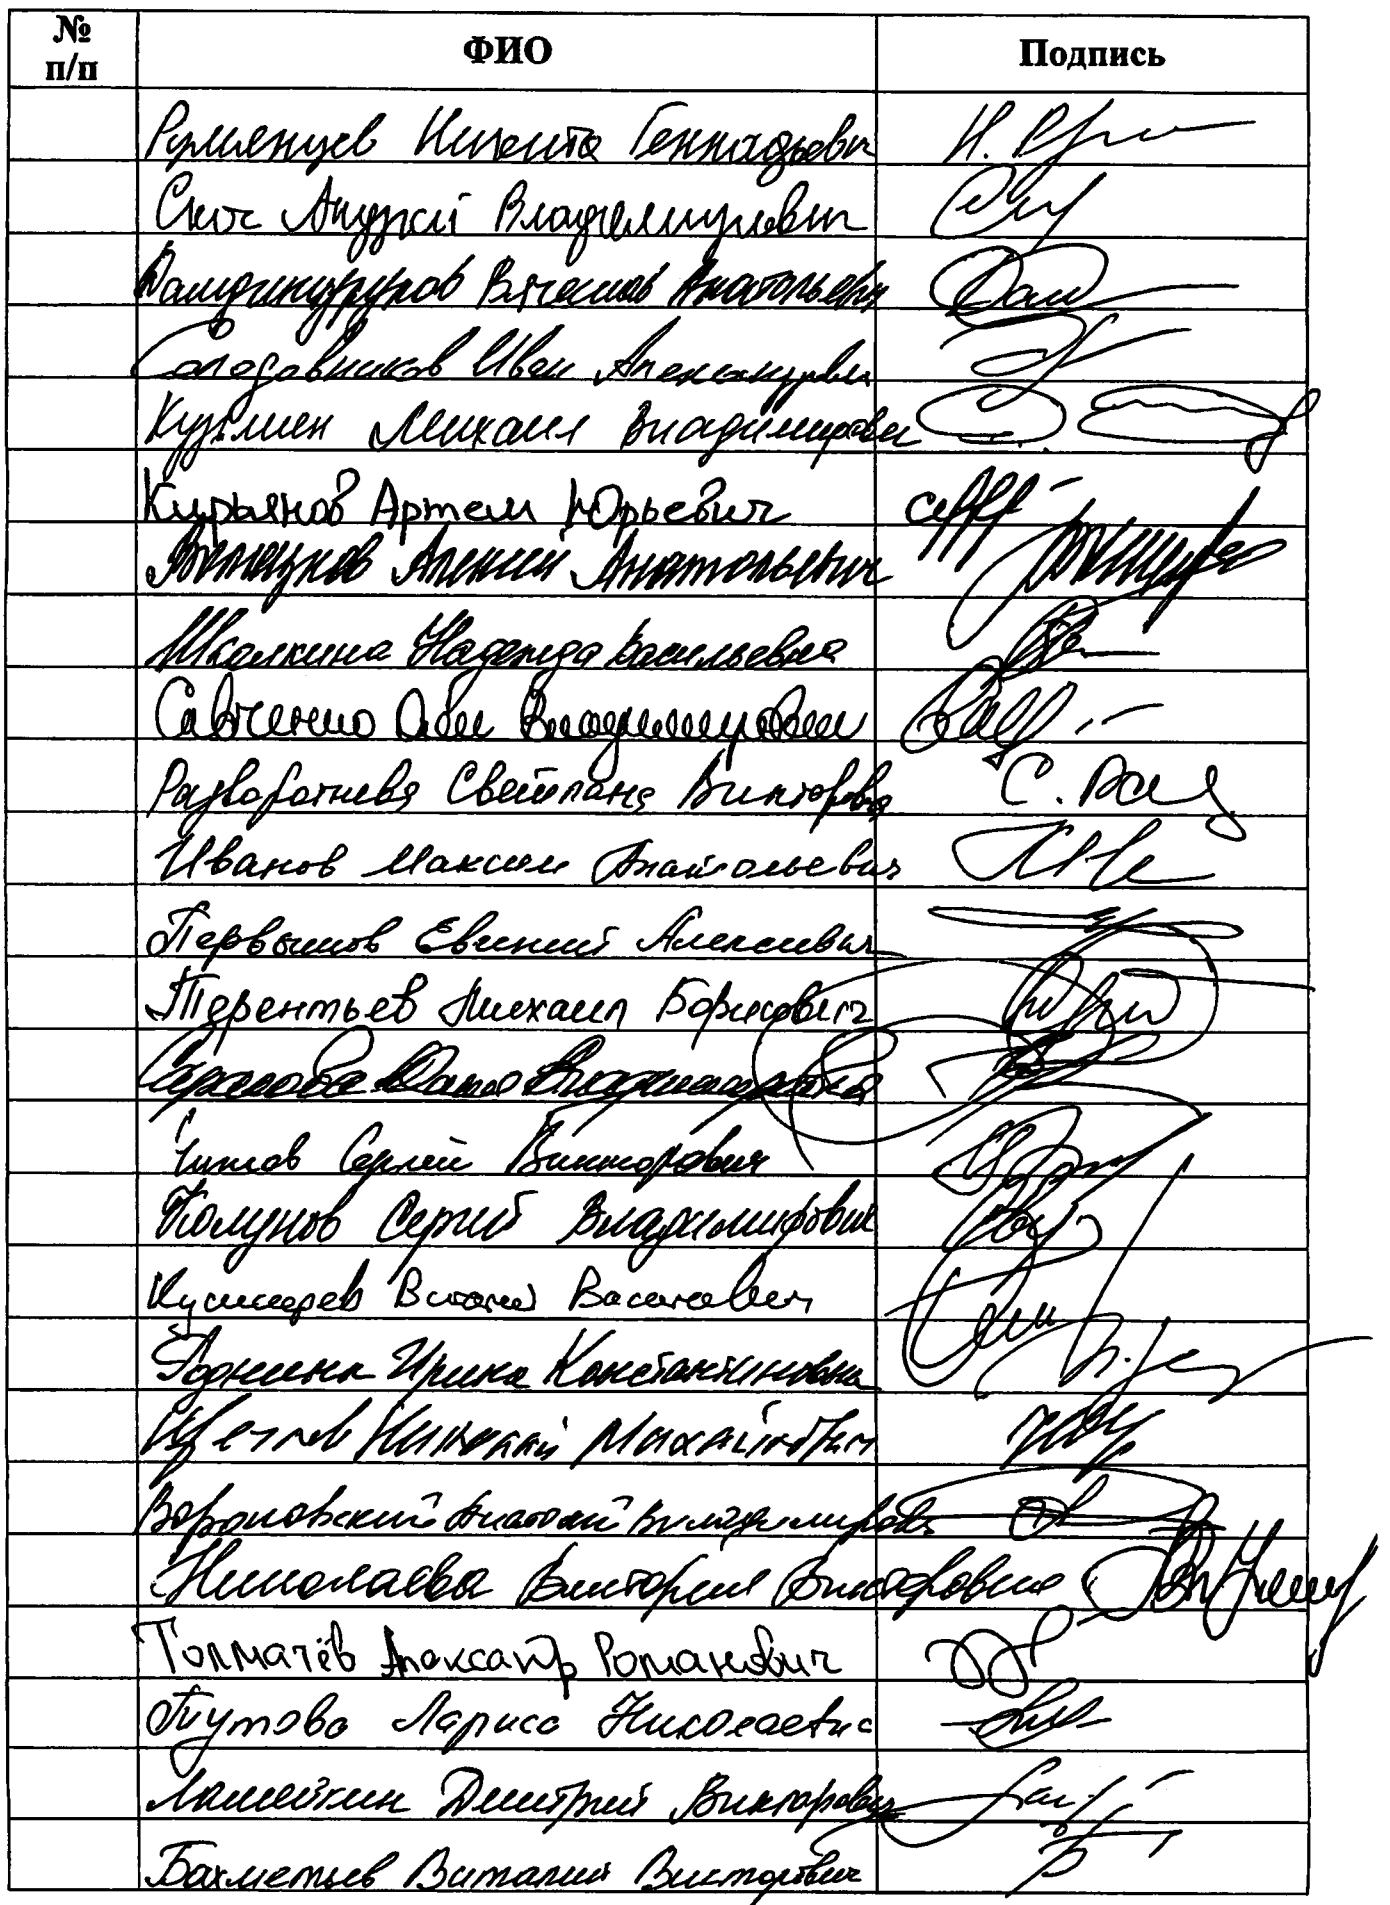 № п/п ФИО Подпись
Румянцев Никита Геннадьевич Н. Рум
Скоч Андрей Владимирович
Дамдинцурунов Вячеслав Анатольевич Дам
Солодовников Иван Александрович
Кузьмин Михаил Владимирович
Кирьянов Артем Юрьевич
Вышегуров Алексей Анатольевич
Школкина Надежда Васильевна
Савченко Олег Владимирович
Разворотнева Светлана Викторовна С. Раз
Иванов Максим Анатольевич
Первышов Евгений Алексеевич
Терентьев Михаил Борисович
Сарапова Ольга Владимировна
Чижов Сергей Викторович
Колунов Сергей Владимирович
Кушнарев Виталий Васильевич
Роднина Ирина Константиновна
Цветков Николай Михайлович
Вороновский Анатолий Владимирович
Николаева Виктория Викторовна
Толмачёв Александр Романович
Тутова Лариса Николаевна
Ламейкин Дмитрий Викторович
Бахметьев Виталий Викторович